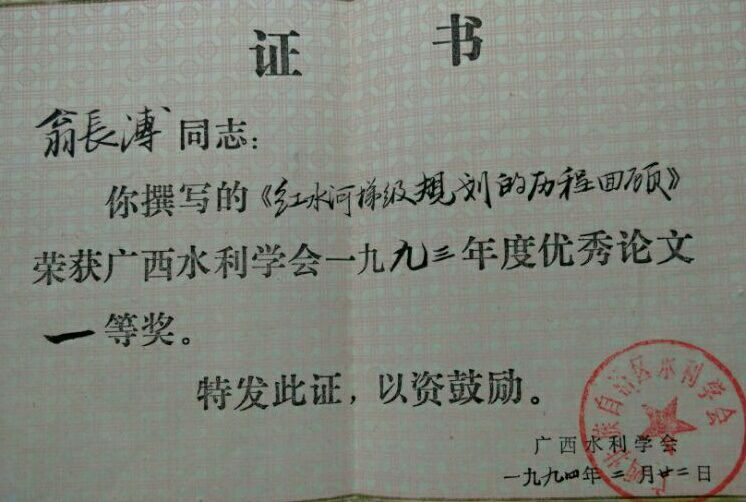 证 书
翁長溥同志：
你撰写的《红水河梯级规划的历程回顾》
荣获广西水利学会一九九三年度优秀论文
一等奖。
特发此证，以资鼓励。
广西水利学会
一九九四年二月廿二日
族自治区水利学会